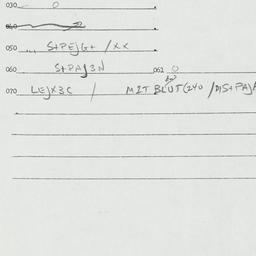 030 O
050 ... S+PEJG+ /XX
060 S+PAJ3N 061 O
070 LEJX3C / MIT BLUT(ZYO /DIS+PAJA